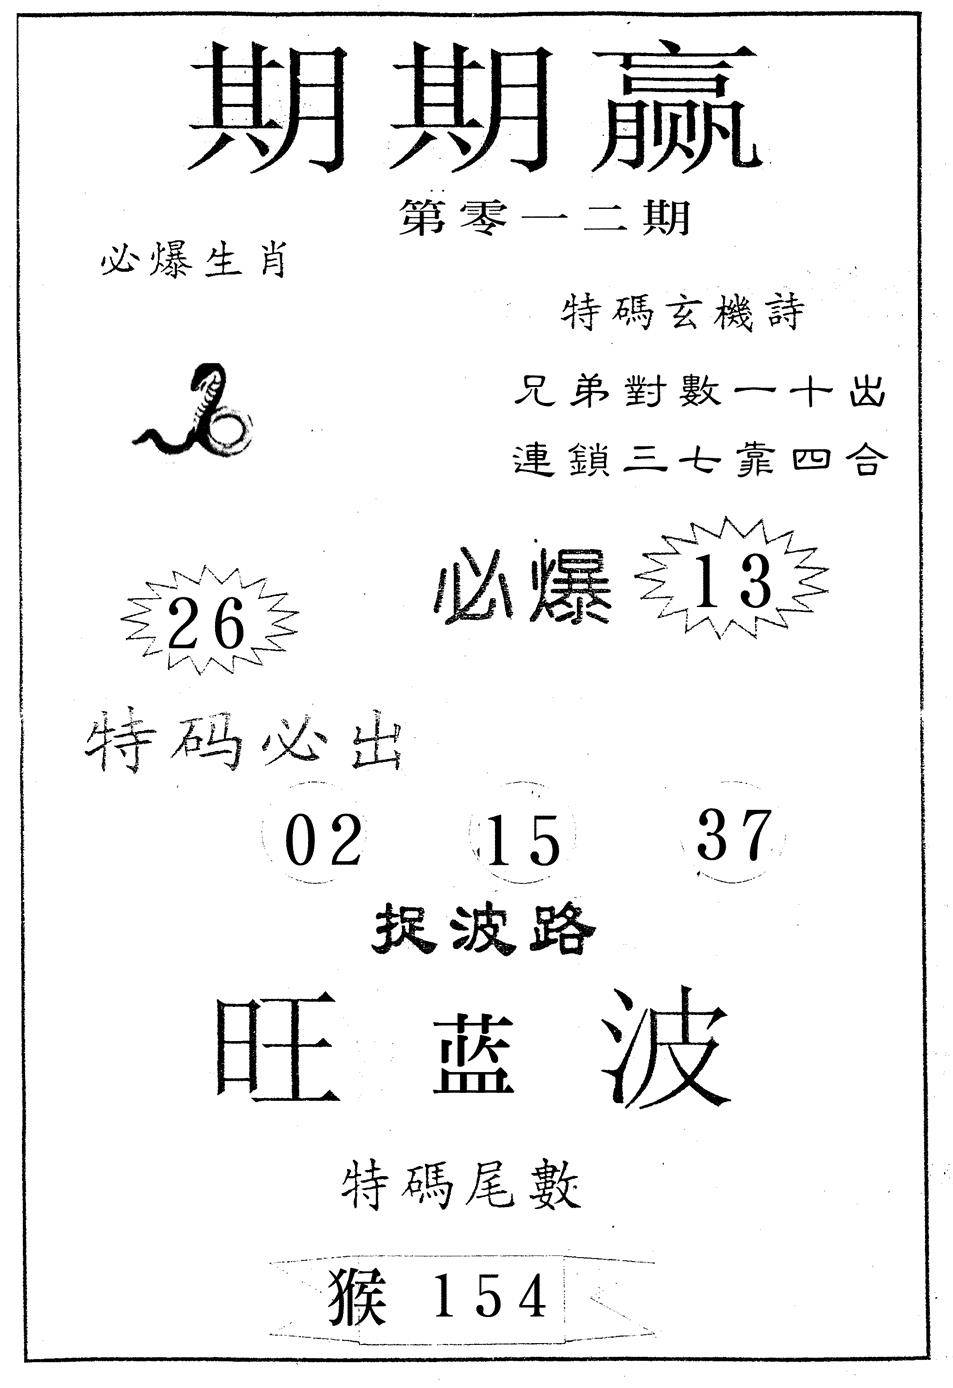 期期赢
第零一二期
必爆生肖
特碼玄機詩
兄弟對數一十出
連鎖三七靠四合
必爆 13
26
特码必出
02 15 37
捉波路
旺蓝波
特碼尾數
猴 154